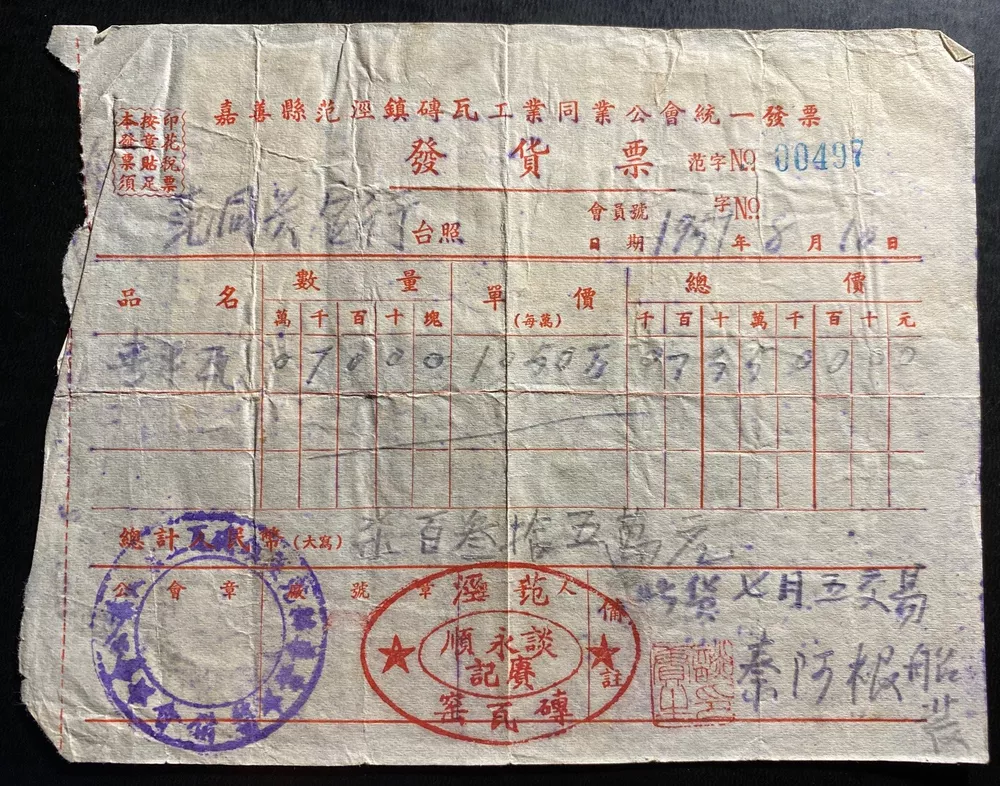 嘉善縣范涇鎮磚瓦工業同業公會統一發票
印花税票
按章貼足
本發票須
發貨票
范字№ 00497
會員號 字№
台照
日期 195 年 8 月 10 日
品名 數量 單價 總價
萬 千 百 十 塊 (每萬) 千 百 十 萬 千 百 十 元
0 7 0 0 0 1050万 0 7 3 5 0 0 0 0
總計人民幣(大寫) 柒百叁拾五萬元
公會章 廠號章 人 備註
此貨七月五交易
秦阿根船
裝
范涇
談永順
賡記
磚瓦窑